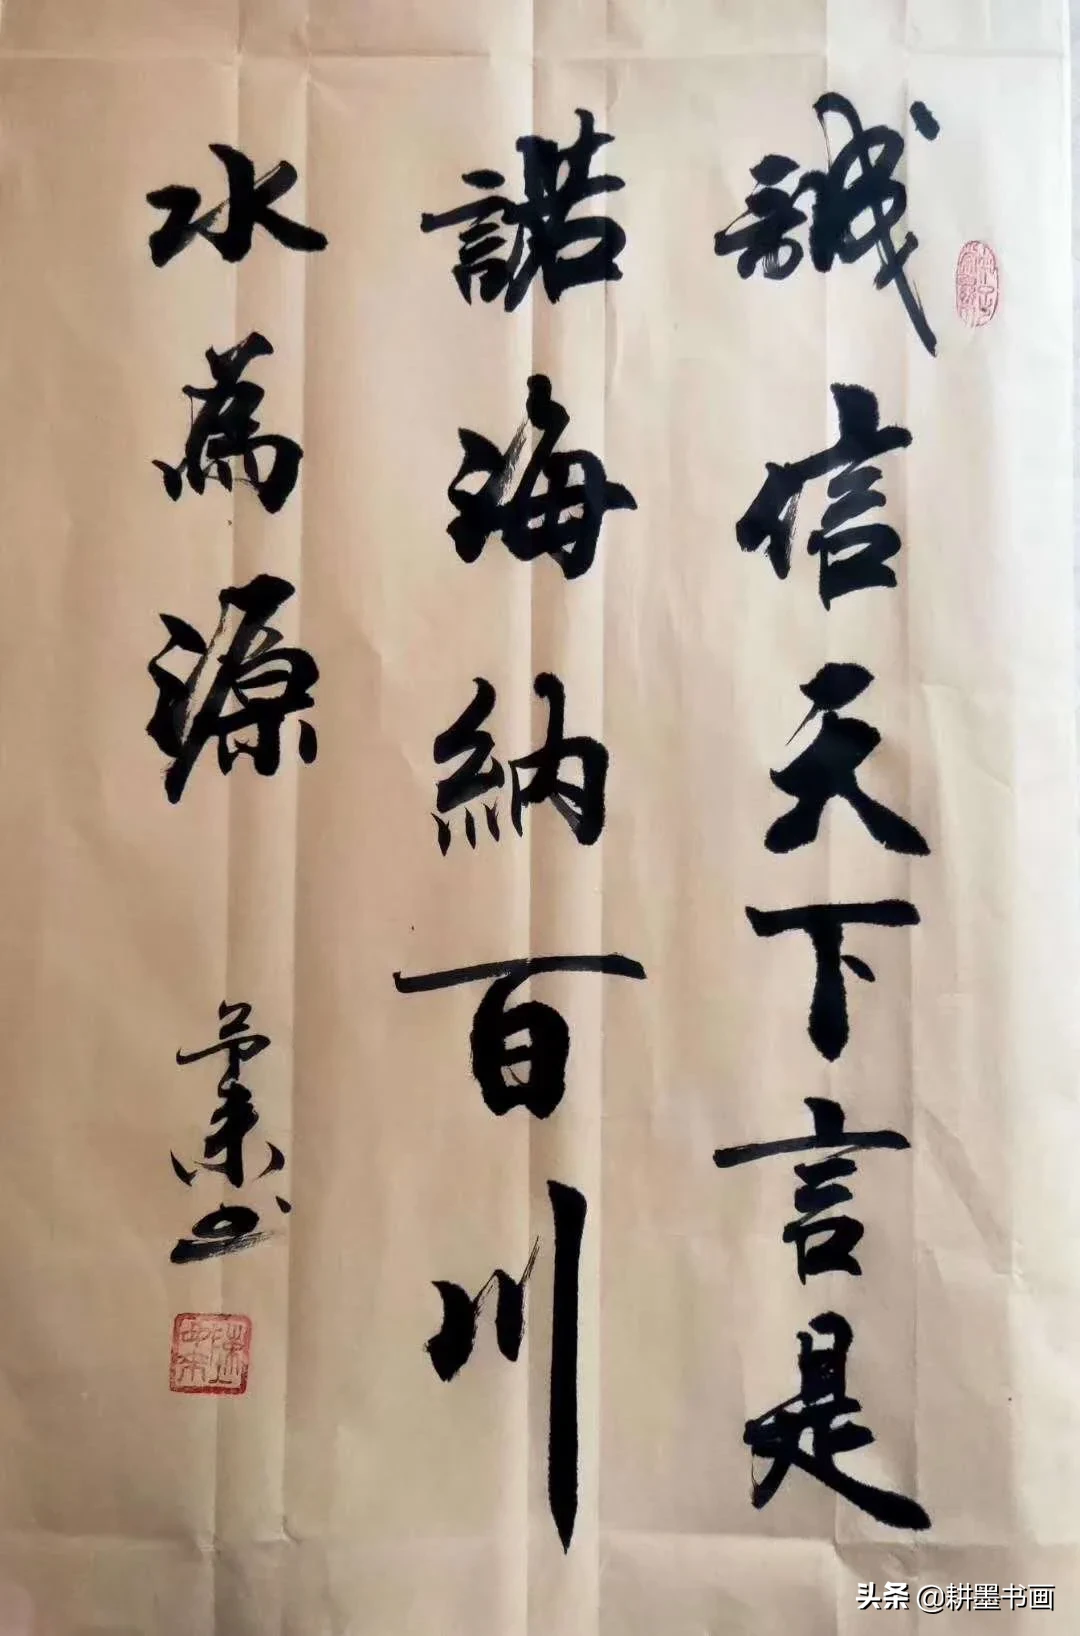 誠信天下言是
諾海納百川
水為源
头条 @耕墨书画